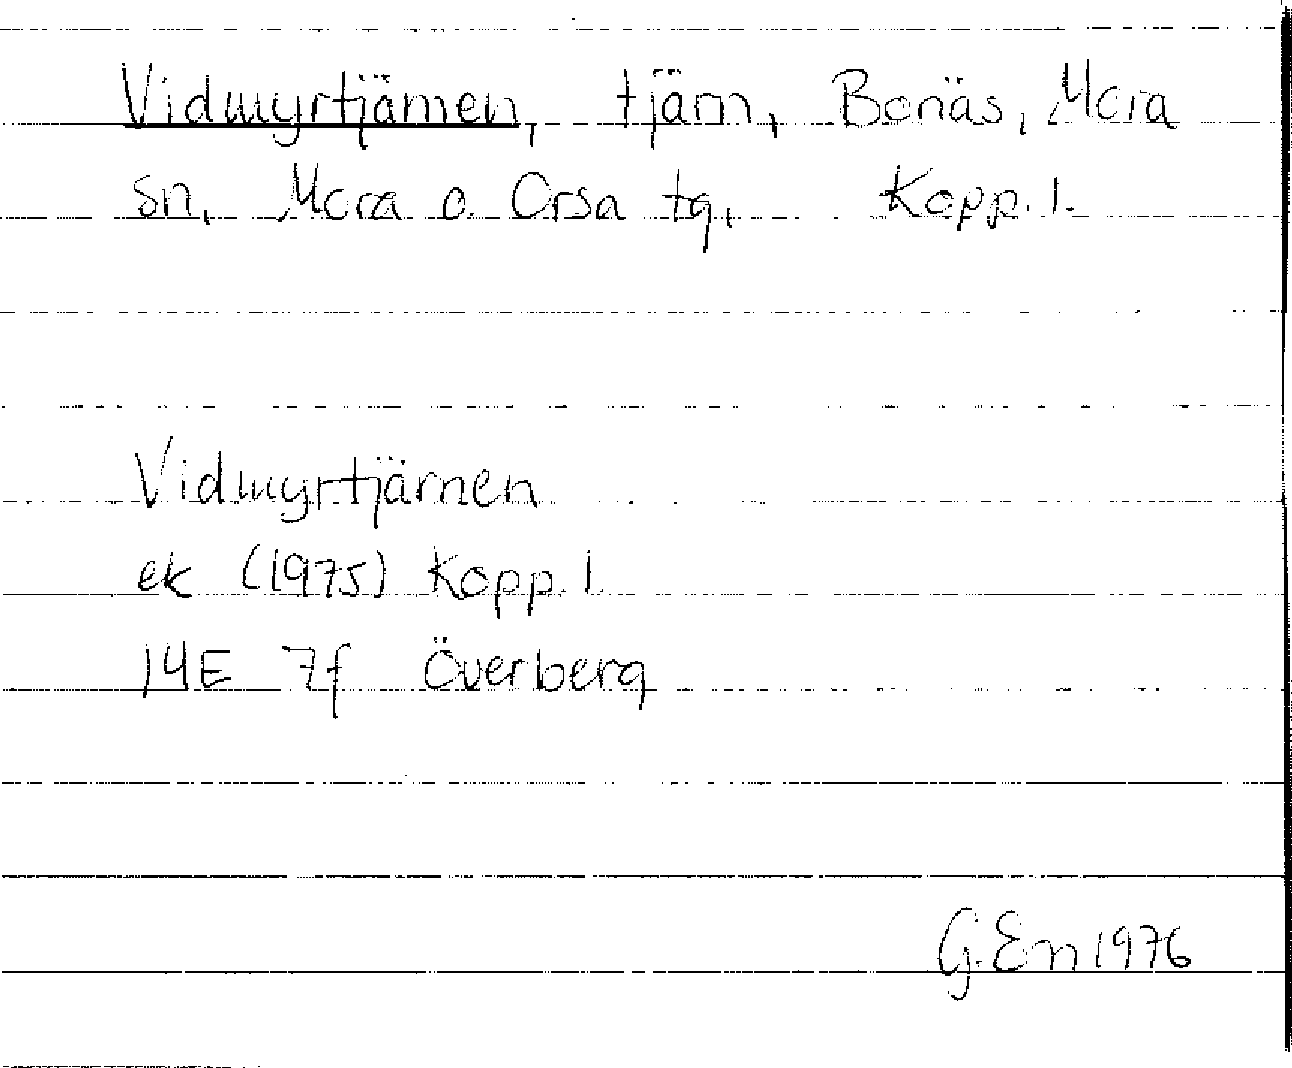 Vidmyrtjärnen, tjärn, Bonäs, Mora
sn, Mora o. Orsa tg, Kopp. l.
Vidmyrtjärnen
ek (1975) Kopp. l.
14E 7f Överberg
G. En 1976